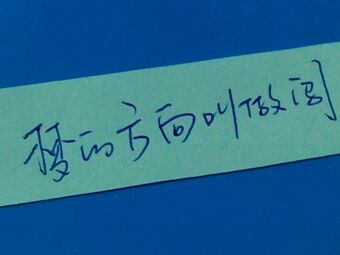 梦的方向叫做闯